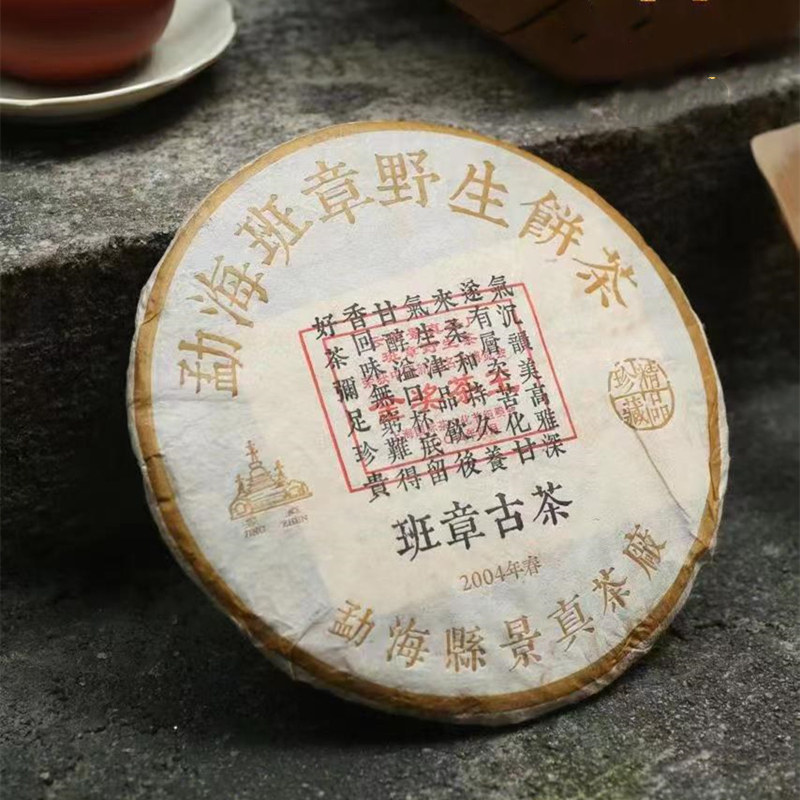 勐海班章野生餅茶
氣沉韻美高雅深
遂有層次苦化甘
來柔和持久養
氣生津品飲後
甘醇溢口杯底留
香回味無窮難得
好茶彌足珍貴
精品珍藏
景真
JING ZHEN
班章古茶
2004年春
勐海縣景真茶廠